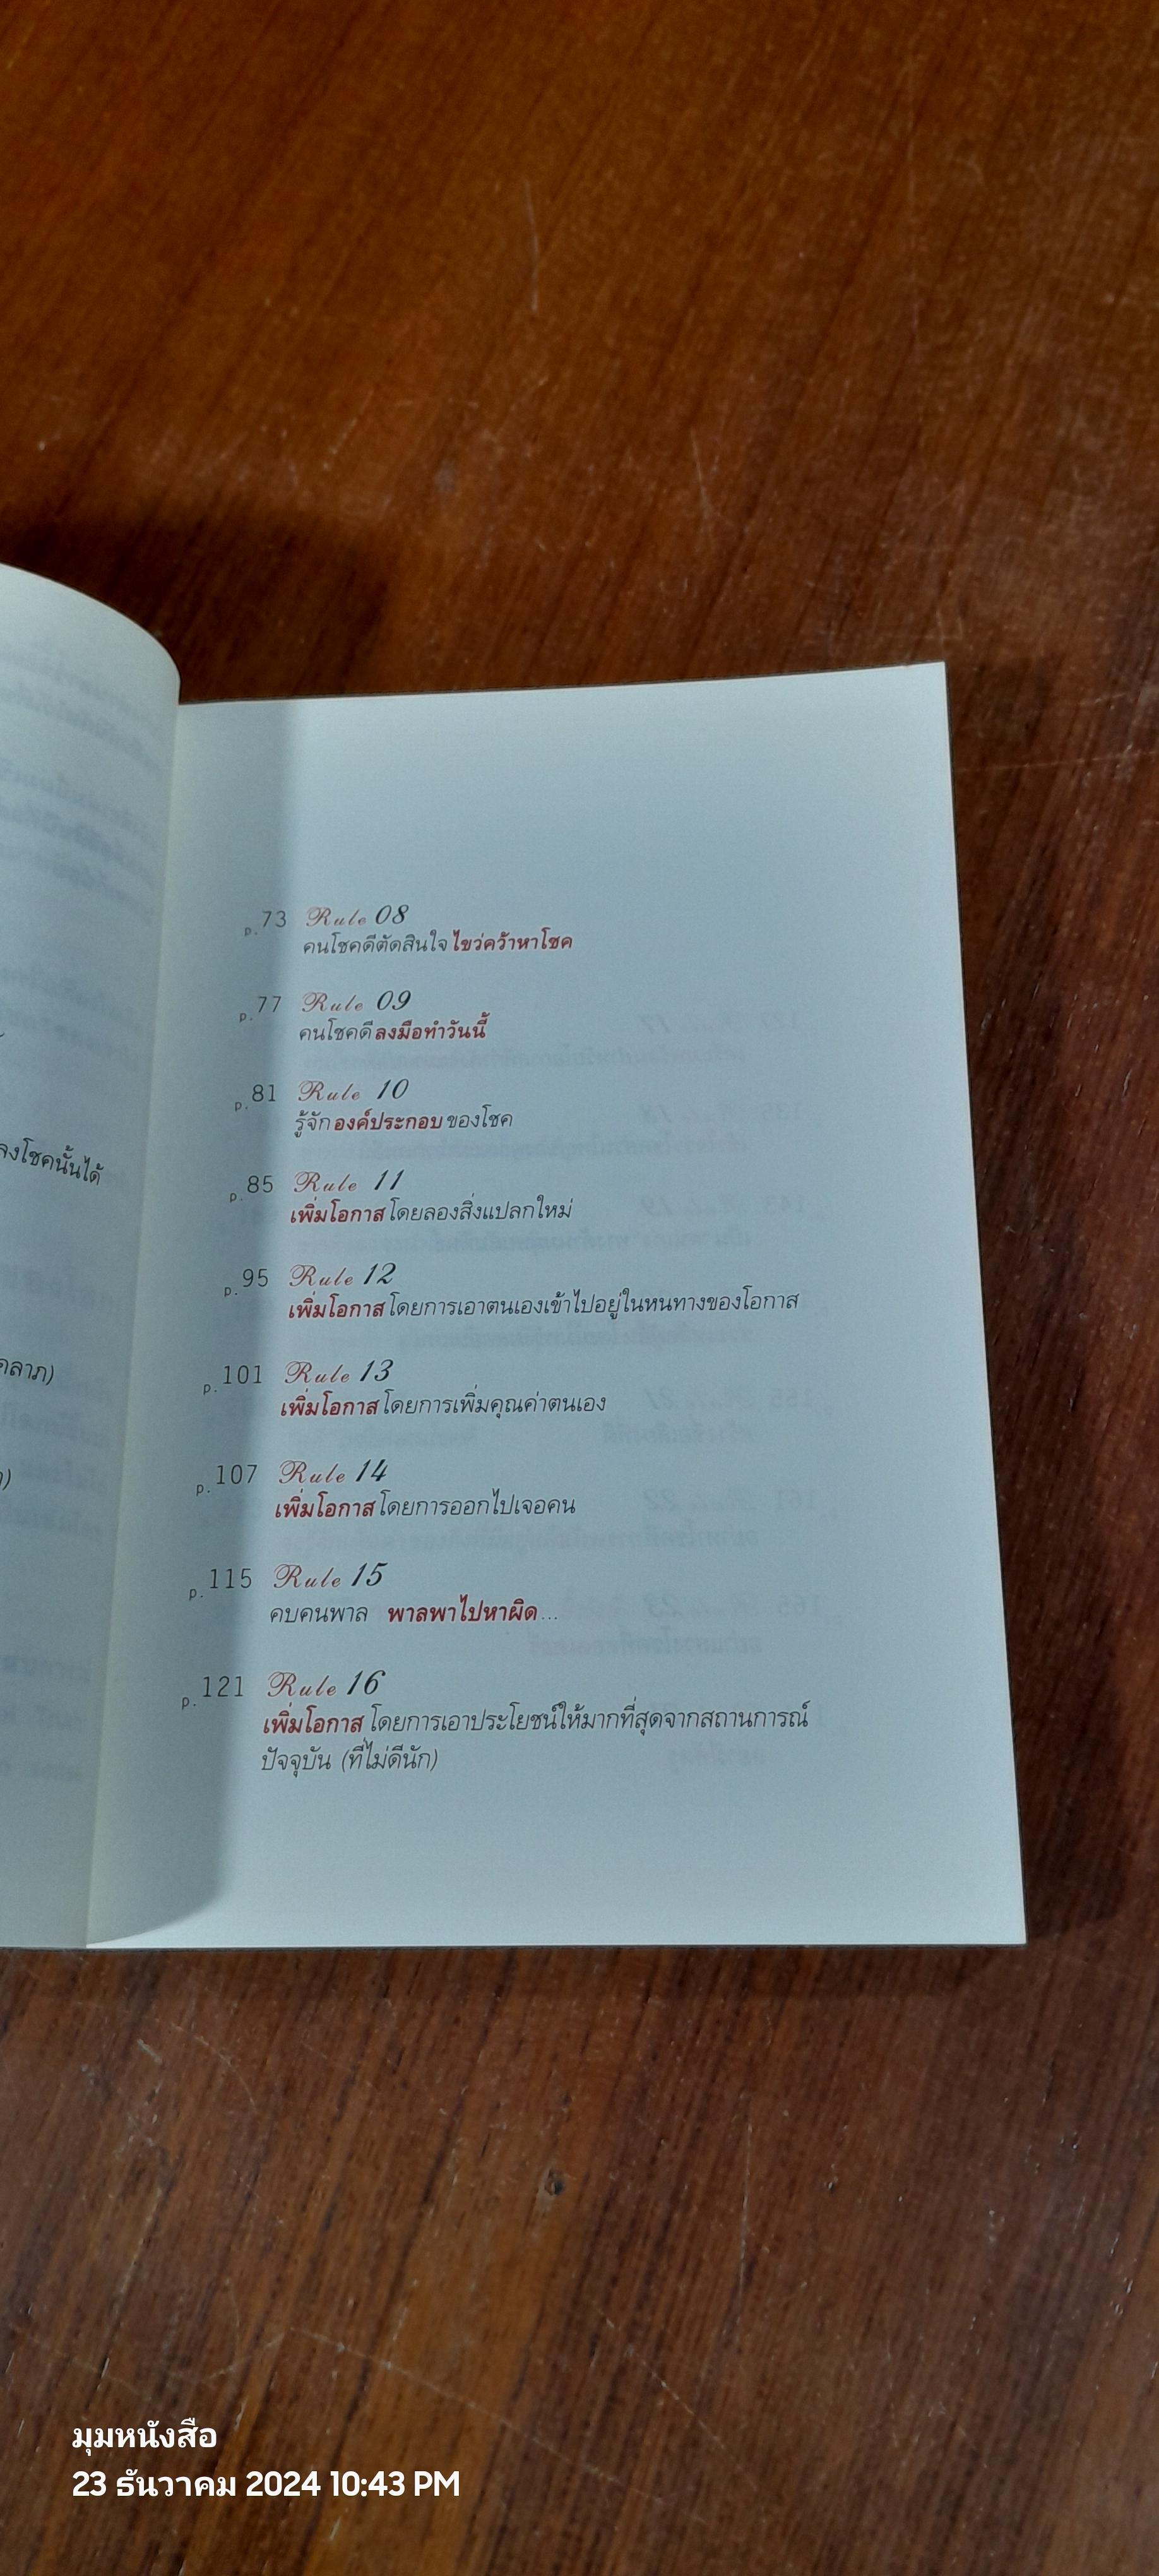 ลงโชคนั้นได้
p.73 Rule 08
คนโชคดีตัดสินใจ ไขว่คว้าหาโชค
p.77 Rule 09
คนโชคดี ลงมือทำวันนี้
p.81 Rule 10
รู้จัก องค์ประกอบ ของโชค
p.85 Rule 11
เพิ่มโอกาส โดยลองสิ่งแปลกใหม่
p.95 Rule 12
เพิ่มโอกาส โดยการเอาตนเองเข้าไปอยู่ในหนทางของโอกาส
p.101 Rule 13
เพิ่มโอกาส โดยการเพิ่มคุณค่าตนเอง
p.107 Rule 14
เพิ่มโอกาส โดยการออกไปเจอคน
p.115 Rule 15
คบคนพาล พาลพาไปหาผิด...
p.121 Rule 16
เพิ่มโอกาส โดยการเอาประโยชน์ให้มากที่สุดจากสถานการณ์
ปัจจุบัน (ที่ไม่ดีนัก)
มุมหนังสือ
23 ธันวาคม 2024 10:43 PM